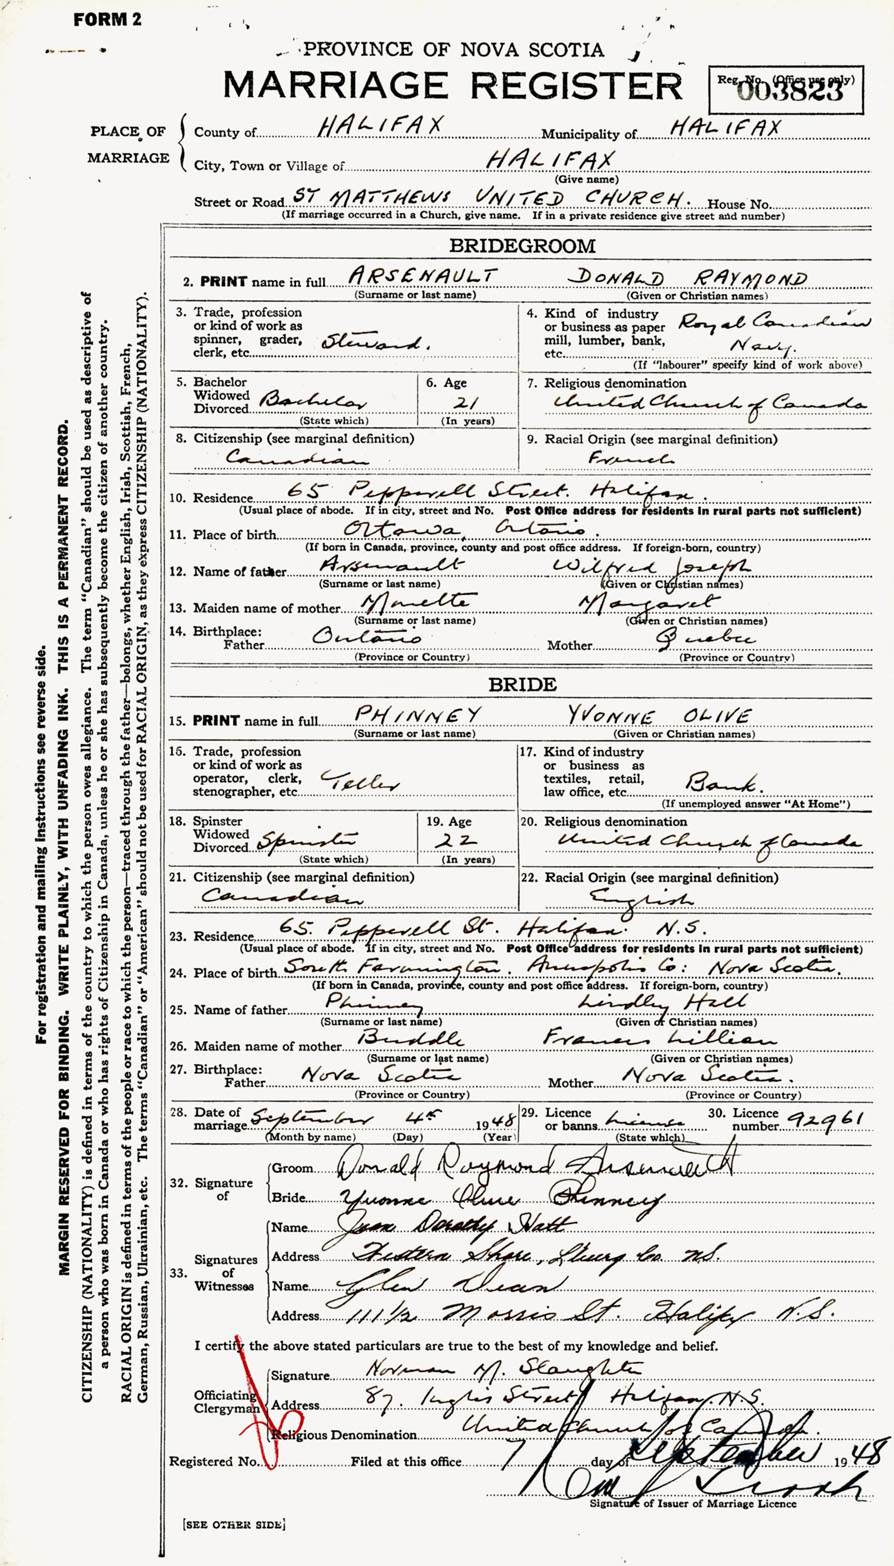 FORM 2
PROVINCE OF NOVA SCOTIA
MARRIAGE REGISTER
Reg. No. (Office use only)
003823
PLACE OF MARRIAGE
County of HALIFAX Municipality of HALIFAX
City, Town or Village of HALIFAX
(Give name)
Street or Road ST MATTHEWS UNITED CHURCH. House No.
(If marriage occurred in a Church, give name. If in a private residence give street and number)
BRIDEGROOM
2. PRINT name in full ARSENAULT DONALD RAYMOND
(Surname or last name) (Given or Christian names)
3. Trade, profession or kind of work as spinner, grader, clerk, etc. Steward.
4. Kind of industry or business as paper mill, lumber, bank, etc. Royal Canadian Navy.
(If "labourer" specify kind of work above)
5. Bachelor Widowed Divorced Bachelor
(State which)
6. Age 21
(In years)
7. Religious denomination
United Church of Canada
8. Citizenship (see marginal definition)
Canadian
9. Racial Origin (see marginal definition)
French
10. Residence 65 Pepperell Street. Halifax.
(Usual place of abode. If in city, street and No. Post Office address for residents in rural parts not sufficient)
11. Place of birth Ottawa, Ontario.
(If born in Canada, province, county and post office address. If foreign-born, country)
12. Name of father Arsenault Wilfred Joseph
(Surname or last name) (Given or Christian names)
13. Maiden name of mother Monette Margaret
(Surname or last name) (Given or Christian names)
14. Birthplace:
Father Ontario Mother Quebec
(Province or Country) (Province or Country)
BRIDE
15. PRINT name in full PHINNEY YVONNE OLIVE
(Surname or last name) (Given or Christian names)
16. Trade, profession or kind of work as operator, clerk, stenographer, etc. Teller
17. Kind of industry or business as textiles, retail, law office, etc. Bank.
(If unemployed answer "At Home")
18. Spinster Widowed Divorced Spinster
(State which)
19. Age 22
(In years)
20. Religious denomination
United Church of Canada
21. Citizenship (see marginal definition)
Canadian
22. Racial Origin (see marginal definition)
English
23. Residence 65. Pepperell St. Halifax. N.S.
(Usual place of abode. If in city, street and No. Post Office address for residents in rural parts not sufficient)
24. Place of birth South Farmington. Annapolis Co: Nova Scotia.
(If born in Canada, province, county and post office address. If foreign-born, country)
25. Name of father Phinney Lindley Hall
(Surname or last name) (Given or Christian names)
26. Maiden name of mother Buddle Frances Lillian
(Surname or last name) (Given or Christian names)
27. Birthplace:
Father Nova Scotia Mother Nova Scotia.
(Province or Country) (Province or Country)
28. Date of marriage September 4th 1948
(Month by name) (Day) (Year)
29. Licence or banns License
(State which)
30. Licence number 92961
32. Signature of
Groom Donald Raymond Arsenault
Bride Yvonne Olive Phinney
33. Signatures of Witnesses
Name Jean Dorothy Hatt
Address Western Shore, Lunenburg Co. N.S.
Name Glen Dean
Address 111 1/2 Morris St. Halifax N.S.
I certify the above stated particulars are true to the best of my knowledge and belief.
Officiating Clergyman
Signature Norman M. Slaughter
Address 87. Inglis Street Halifax. N.S.
Religious Denomination United Church of Canada.
Registered No. Filed at this office 7 day of September 1948
Signature of Issuer of Marriage Licence
[SEE OTHER SIDE]
For registration and mailing instructions see reverse side.
MARGIN RESERVED FOR BINDING. WRITE PLAINLY, WITH UNFADING INK. THIS IS A PERMANENT RECORD.
CITIZENSHIP (NATIONALITY) is defined in terms of the country to which the person owes allegiance. The term "Canadian" should be used as descriptive of
a person who was born in Canada or who has rights of Citizenship in Canada, unless he or she has subsequently become the citizen of another country.
RACIAL ORIGIN is defined in terms of the people or race to which the person—traced through the father—belongs, whether English, Irish, Scottish, French,
German, Russian, Ukrainian, etc. The terms "Canadian" or "American" should not be used for RACIAL ORIGIN, as they express CITIZENSHIP (NATIONALITY).